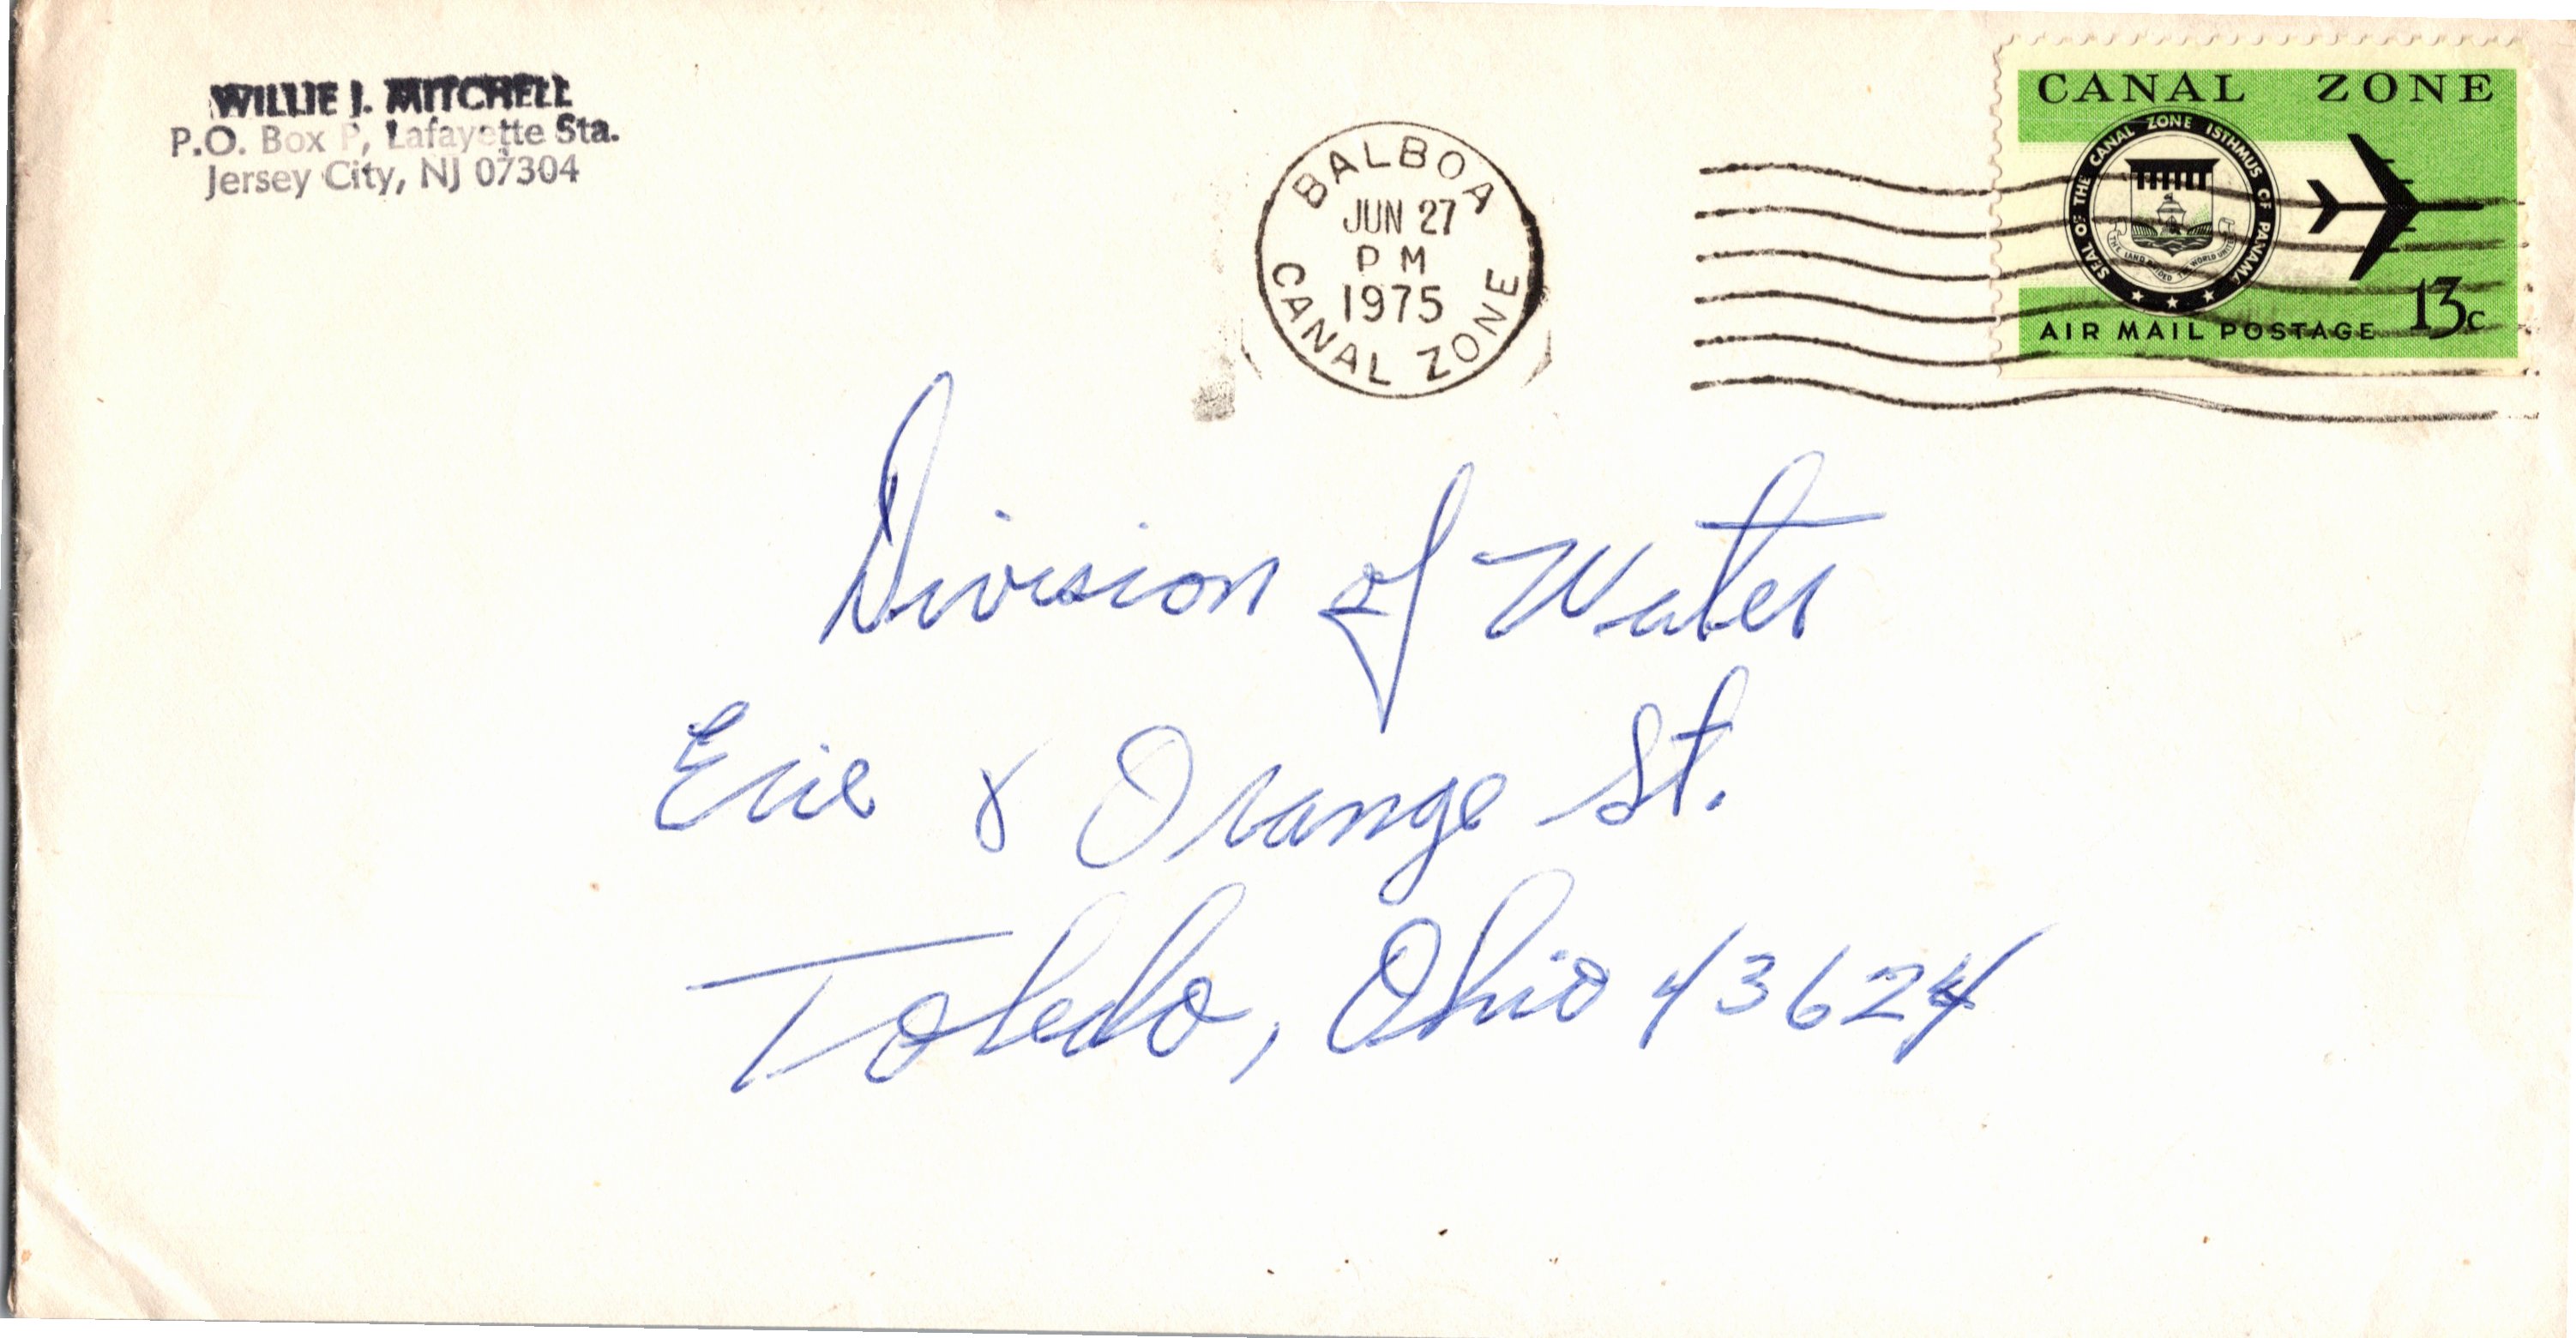 WILLIE J. MITCHELL
P.O. Box P, Lafayette Sta.
Jersey City, NJ 07304
BALBOA
JUN 27
PM
1975
CANAL ZONE
CANAL ZONE
SEAL OF THE CANAL ZONE ISTHMUS OF PANAMA
THE LAND DIVIDED THE WORLD UNITED
AIR MAIL POSTAGE 13c
Division of Water
Erie & Orange St.
Toledo, Ohio 43624